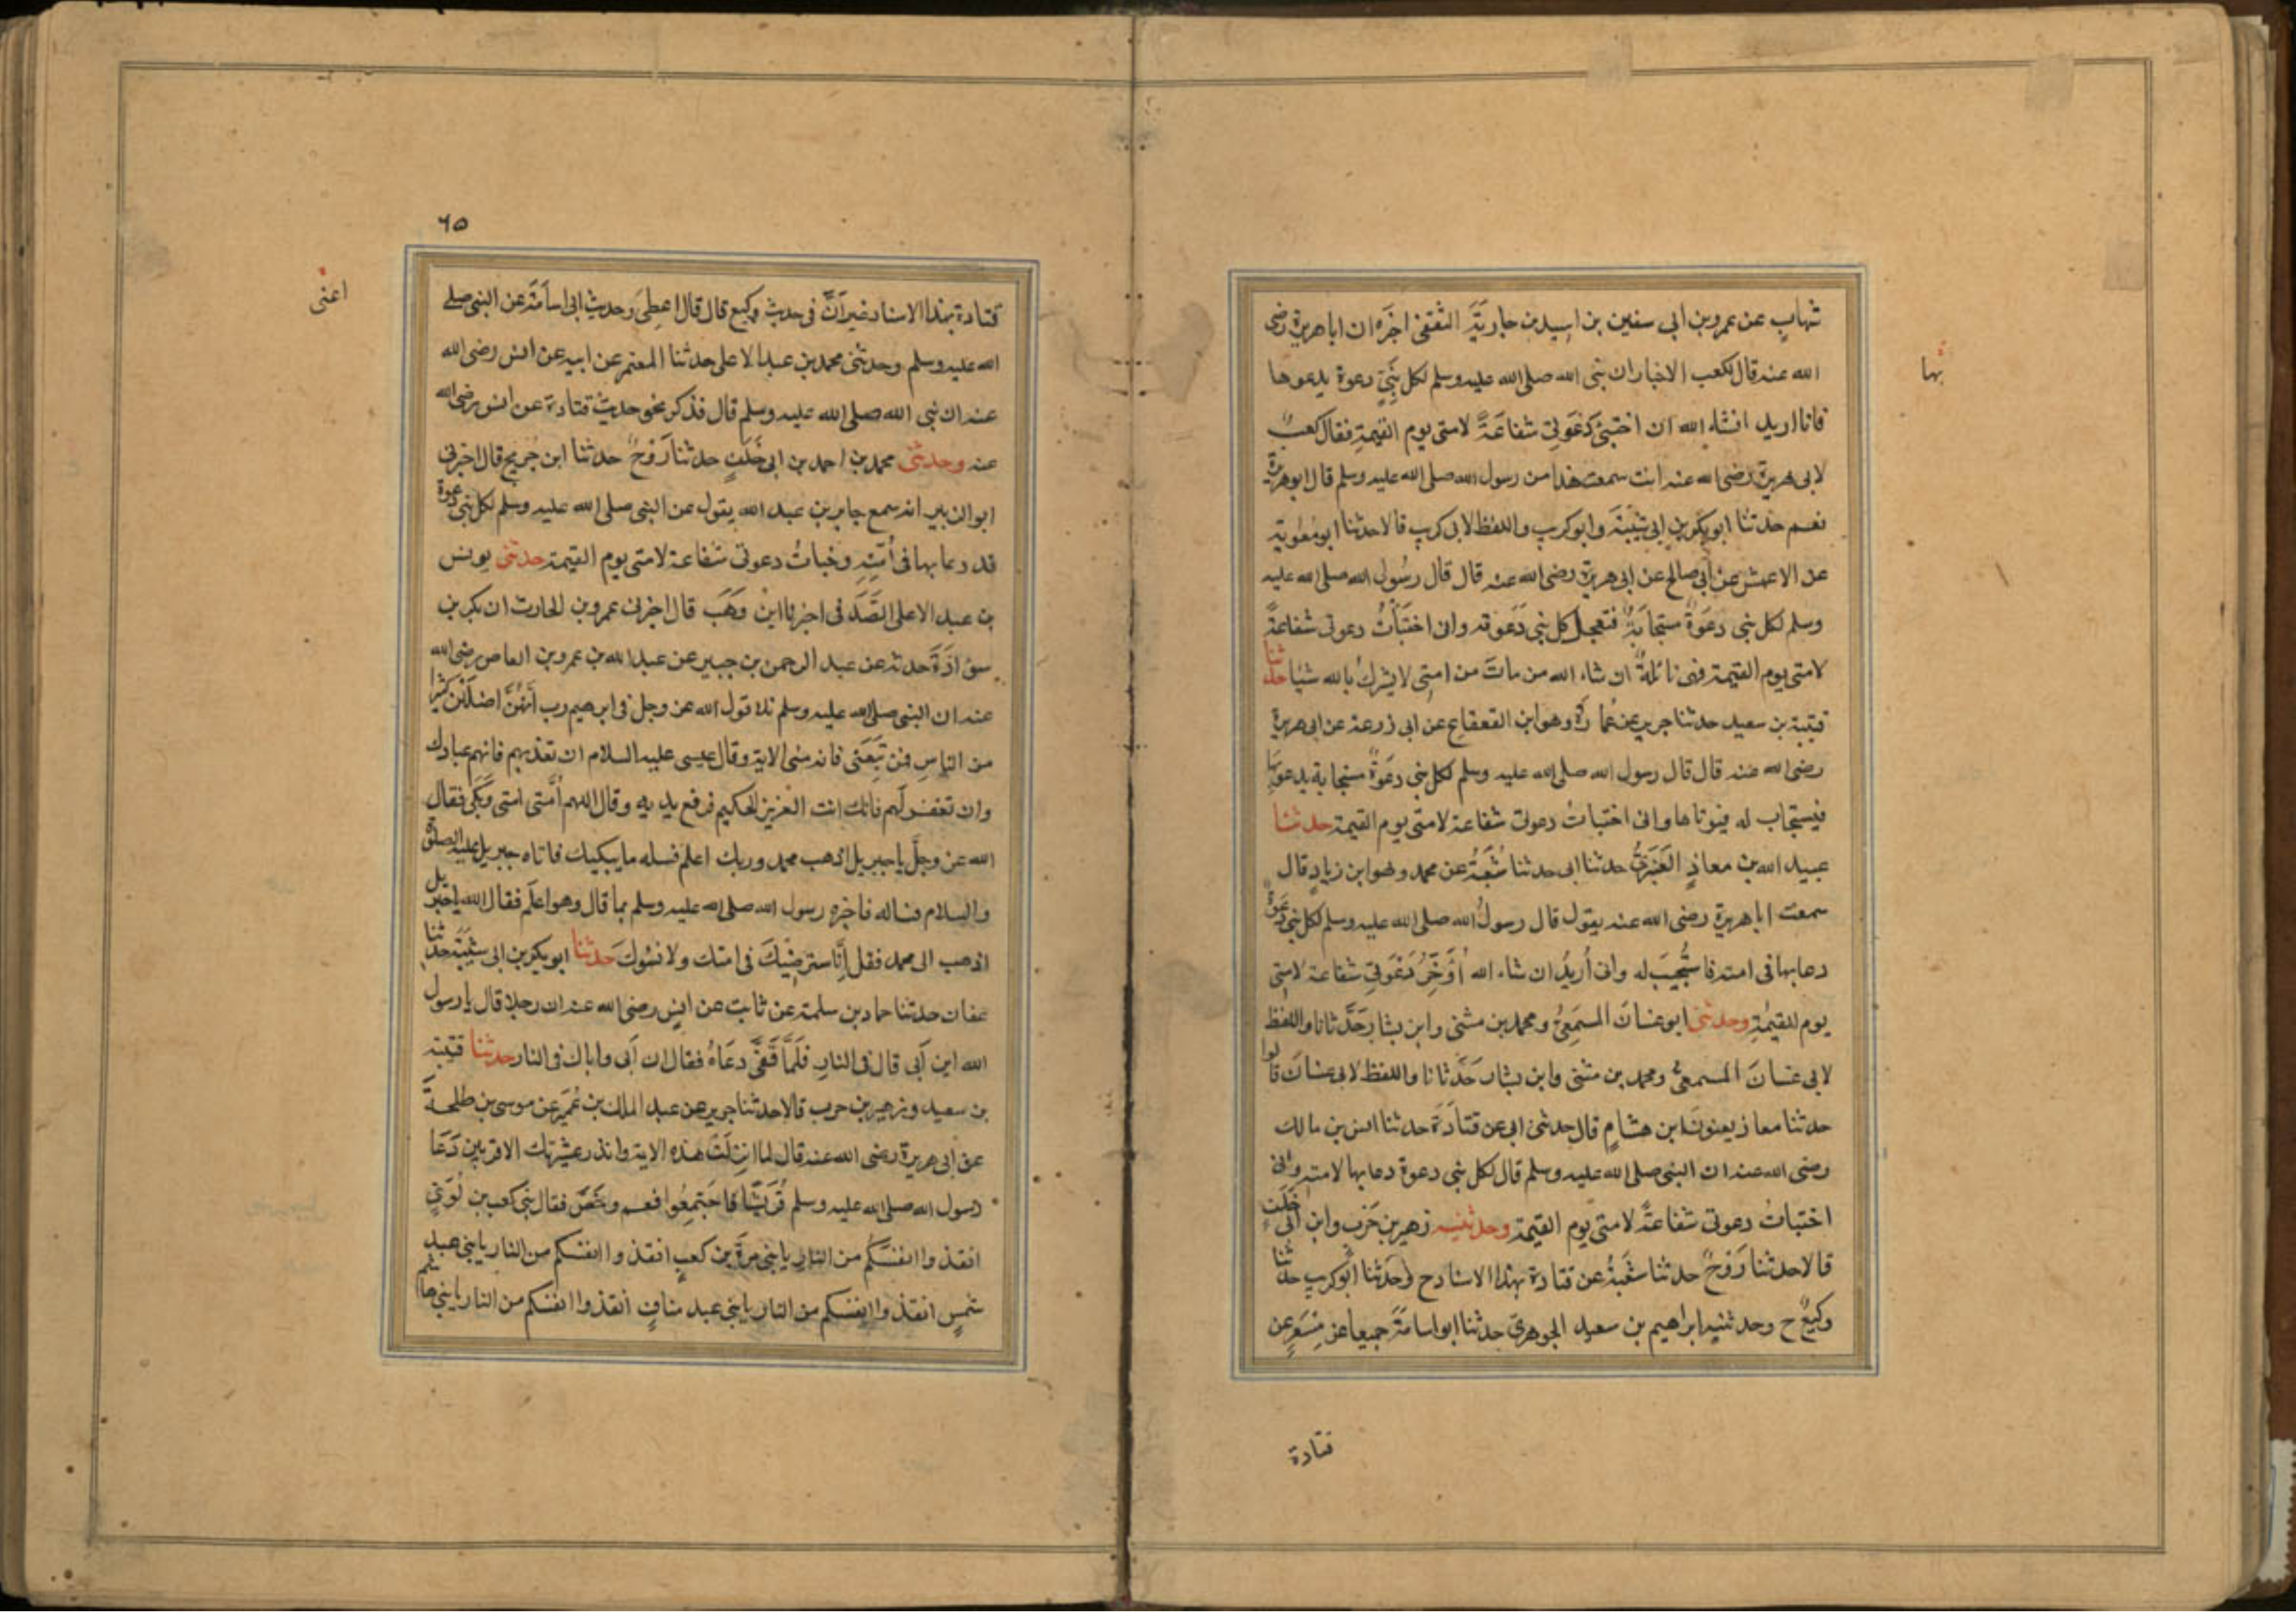 شهاب عن عمرو بن ابى سفين بن اسيد بن جارية الثقفى اخبره ان ابا هريرة رضى
الله عنه قال لكعب الاخبار ان نبى الله صلى الله عليه وسلم لكل نبىّ دعوة يدعوها
بها
فانا اريد انشاء الله ان اختبئ دَعْوَتِى شفاعَةً لامتى يوم القيمة فقال كعبٌ
لابى هريرة رضى الله عنه انت سمعت هذا من رسول الله صلى الله عليه وسلم قال ابو هريرة
نعم حدثنا ابو بكر بن ابى شَيْبَةَ وابو كريب واللفظ لابى كريب قالا حدثنا ابو مُعٰوية
عن الاعمش عن ابى صالح عن ابى هريرة رضى الله عنه قال قال رسُول الله صلى الله عليه
وسلم لكل نبى دعَوَةٌ مستجابَةٌ فتعجل كل نبى دَعَوته وانى اختَبَأتُ دعوتى شفاعةً
لامتى يوم القيمة فهى نائلةٌ ان شاء الله من ماتَ من امتى لا يشركُ بالله شيئا حدثنا
قتيبة بن سعيد حدثنا جرير عن عُمارة وهو ابن القعقاع عن ابى زرعة عن ابى هريرة
رضى الله عنه قال قال رسول الله صلى الله عليه وسلم لكل نبى دعَوةٌ مستجابة يدعو بِهَا
فيستجاب له فيوتاها وانى اختبأتُ دعوتى شفاعة لامتى يوم القيمة حدثنا
عبيد الله بن معاذٍ العَنْبَرِىُّ حدثنا ابى حدثنا شُعْبَةُ عن محمد وهو ابن زيادٍ قال
سمعت ابا هريرة رضى الله عنه يقول قال رسولُ الله صلى الله عليه وسلم لكل نبى دعوةٌ
دعا بها فى امته فاستُجيبَ له وانى أُريدُ ان شاء الله أؤَخِّرُ دَعْوَتِى شفاعة لامتى
يوم القيمةِ وحدثنى ابو غسانَ المسمَعِىُّ ومحمد بن مثنى وابن بشار حَدَّثانا واللفظ
لابى غسانَ المسمعىُّ ومحمد بن مثنى وابن بشار حَدَّثانا واللفظ لابى غسانَ قالوا
حدثنا معاذ يعنونَ ابن هشامٍ قال حدثنى ابى عن قتادَةَ حدثنا انس بن مالك
رضى الله عنه ان النبى صلى الله عليه وسلم قال لكل نبى دعوة دعا بها لامته وانى
اختبأتُ دعوتى شفاعةً لامتى يوم القيمة وحدثنيه زهير بن حَرْب وابن ابى خَلَفٍ
قالا حدثنا رَوْحٌ حدثنا شُعْبَةُ عن قتادة بهذا الاسناد ح وحدثنا ابُو كريب حدثنا
وكيعٌ ح وحدثنيه ابراهيم بن سعيد الجوهرىّ حدثنا ابو اسامةَ جميعا عن مِسْعَرٍ عن
قتادة
٦٥
قتادة بهذا الاسناد غير اَنَّ فى حديث وكيع قال قال اعطِىَ وحديث ابى اسامَةَ عن النبى صلى
اعنى
الله عليه وسلم وحدثنى محمد بن عبد الاعلى حدثنا المعتمر عن ابيه عن انس رضى الله
عنه ان نبى الله صلى الله عليه وسلم قال فذكر نحو حديث قتادة عن انس رضى الله
عنه وحدثنى محمد بن احمد بن ابى خَلَفٍ حدثنا رَوْحٌ حدثنا ابن جُريج قال اخبرنى
ابو الزبير انه سمع جابر بن عبد الله يقول عن النبى صلى الله عليه وسلم لكل نبى دعوة
قد دعا بها فى أمَّتِهِ وخبأتُ دعوتى شفاعة لامتى يوم القيمة حدثنى يونس
بن عبد الاعلى الصَّدَفى اخبرنا ابن وَهَب قال اخبرنى عمرو بن الحارث ان بكر بن
سوَادَةَ حدثه عن عبد الرحمن بن جبير عن عبد الله بن عمرو بن العاص رضى الله
عنه ان النبى صلى الله عليه وسلم تلا قول الله عز وجل فى ابرهيم رب اِنَّهُنَّ اضلَلْنَ كثيرا
من الناسِ فمن تَبِعَنى فانه منى الاية وقال عيسى عليه السلام ان تعذبهم فانهم عبادك
وان تغفر لهم فانك انت العزيز الحكيم فرفع يديه وقال اللهم اُمَّتى امتى وَبَكَى فقال
الله عز وجلَّ يا جبريل اذهب محمد وربك اعلم فسله ما يبكيك فاتاه جبريل عليه الصلوة
والسلام فساله فاخبره رسول الله صلى الله عليه وسلم بما قال وهو اعلَم فقال الله يا جبريل
اذهب الى محمد فقل اِنَّا سنرضيْكَ فى امتك ولا نسُوكَ حدثنا ابو بكر بن ابى شَيْبَةَ حدثنا
عفان حدثنا حماد بن سلمة عن ثابت عن انس رضى الله عنه ان رجلا قال يا رسول
الله اين اَبى قال فى النارِ فلَمَّا قَفَّى دعَاهُ فقال ان اَبى واباك فى النار حدثنا قتيبة
بن سعيد وزهير بن حرب قالا حدثنا جرير عن عبد الملك بن عُمَير عن موسى بن طلحةَ
عن ابى هريرة رضى الله عنه قال لما انزلَتْ هذه الاية وانذر عشيرتك الاقربين دَعَا
رسول الله صلى الله عليه وسلم قُرَيْشًا فاجتمِعُوا فعم وخَصَّ فقال بنى كعب بن لُوَىّ
انقذوا انفسكم من النارِ يا بنى مرةَ بن كعبٍ انقذوا انفسكم من النار يا بنى عبد
شمسٍ انقذوا انفسكم من النار يا بنى عبد منافٍ انقذوا انفسكم من النار يا بنى هاشم